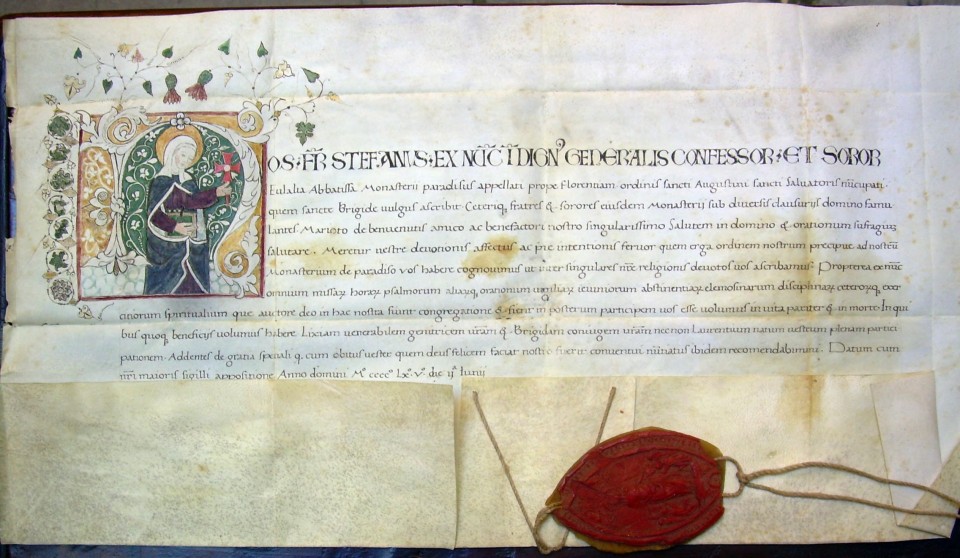 NOS · FR̃ STEFANUS · EX N̄C̄ĪC̄ ĪDIONꝰ GENERALIS CONFESSOR · ET SOROR
Eulalia Abbatissa Monasterii paradisus appellati prope Florentiam ordinis sancti Augustini sancti Salvatoris nūcupati ·
quem sancte Brigide vulgus ascribit · Ceteriq, fratres & sorores eiusdem Monasterij sub diversis clausuris domino famu
lantes Marioto de benvenutis amico ac benefactori nostro singularissimo Salutem in domino & orationum sufragijs
salutare · Meretur vestre devotionis affectus ac pie intentionis fervor quem erga ordinem nostrum precipue ad nostrū
Monasterium de paradiso vos habere cognovimus ut inter singulares nr̄e religionis devotos vos ascribamus · Propterea ex nūc
omnium missaꝝ horaꝝ psalmorum aliaꝝq, orationum vigiliaꝝ ieiuniorum abstinentiaꝝ elemosinarum disciplinaꝝ ceteroꝝq, exer
citiorum spiritualium que auctore deo in hac nostra fiunt congregatione & fient in posterum participem vos esse volumus in vita pariter & in morte · In qui
bus quoq, beneficijs volumus habere Lisam venerabilem genitricem vr̄am & Brigidam coniugem vr̄am necnon Laurentium natum vestrum plenam partici
pationem · Addentes de gratia speciali q, cum obitus vester quem deus felicem faciat nostro fuerit conventui nūtiatus ibidem recomendabimini · Datum cum
nr̄i maioris sigilli appositione Anno domini Mº ccccº lxº vº die ijª Iunij